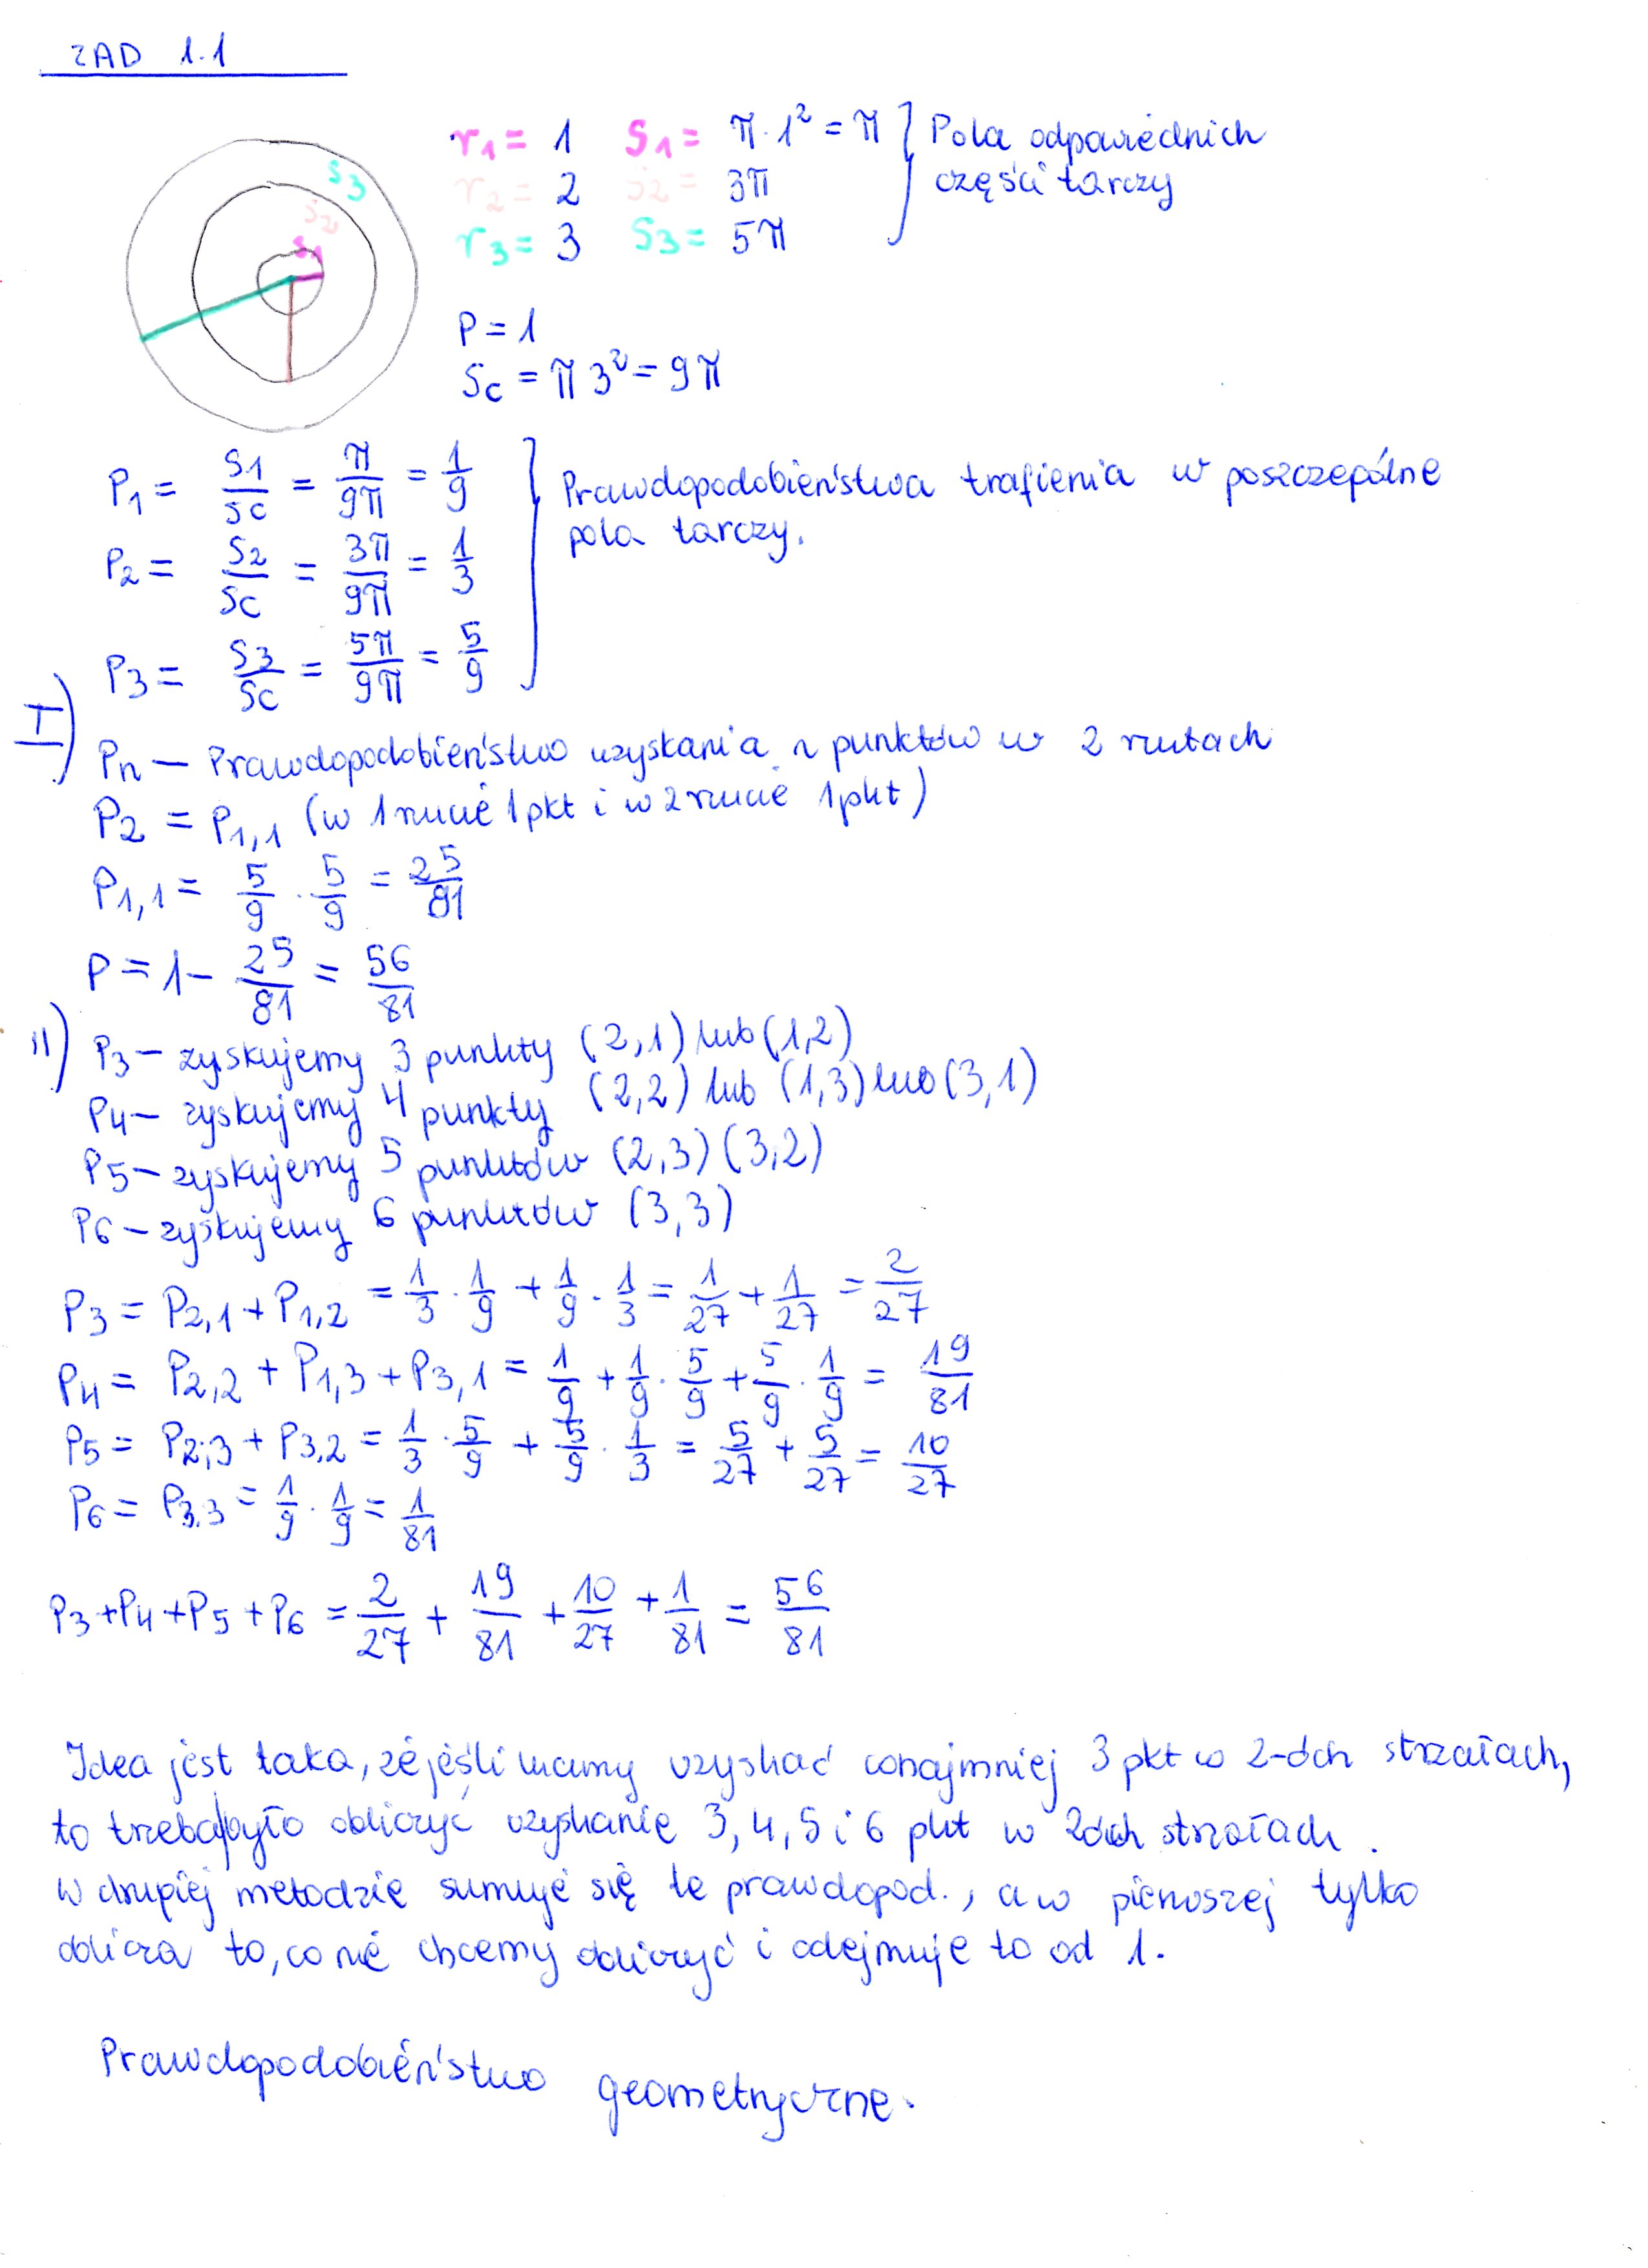 ZAD 1.1
r1 = 1 S1 = π·1² = π } Pola odpowiednich
r2 = 2 S2 = 3π części tarczy
r3 = 3 S3 = 5π
S3
S2
S1
P = 1
Sc = π 3² = 9π
P1 = S1/Sc = π/9π = 1/9 } Prawdopodobieństwa trafienia w poszczególne
pola tarczy.
P2 = S2/Sc = 3π/9π = 1/3
P3 = S3/Sc = 5π/9π = 5/9
I)
Pn – Prawdopodobieństwo uzyskania n punktów w 2 rzutach
P2 = P1,1 (w 1 rzucie 1 pkt i w 2 rzucie 1 pkt)
P1,1 = 5/9 · 5/9 = 25/81
P = 1 – 25/81 = 56/81
II) P3 – zyskujemy 3 punkty (2,1) lub (1,2)
P4 – zyskujemy 4 punkty (2,2) lub (1,3) lub (3,1)
P5 – zyskujemy 5 punktów (2,3) (3,2)
P6 – zyskujemy 6 punktów (3,3)
P3 = P2,1 + P1,2 = 1/3 · 1/9 + 1/9 · 1/3 = 1/27 + 1/27 = 2/27
P4 = P2,2 + P1,3 + P3,1 = 1/9 + 1/9 · 5/9 + 5/9 · 1/9 = 19/81
P5 = P2,3 + P3,2 = 1/3 · 5/9 + 5/9 · 1/3 = 5/27 + 5/27 = 10/27
P6 = P3,3 = 1/9 · 1/9 = 1/81
P3 + P4 + P5 + P6 = 2/27 + 19/81 + 10/27 + 1/81 = 56/81
Idea jest taka, że jeśli mamy uzyskać conajmniej 3 pkt w 2-óch strzałach,
to trzeba było obliczyć uzyskanie 3, 4, 5 i 6 pkt w 2óch strzałach.
W drugiej metodzie sumuje się te prawdopod., a w pierwszej tylko
oblicza to, co nie chcemy obliczyć i odejmuje to od 1.
Prawdopodobieństwo geometryczne.